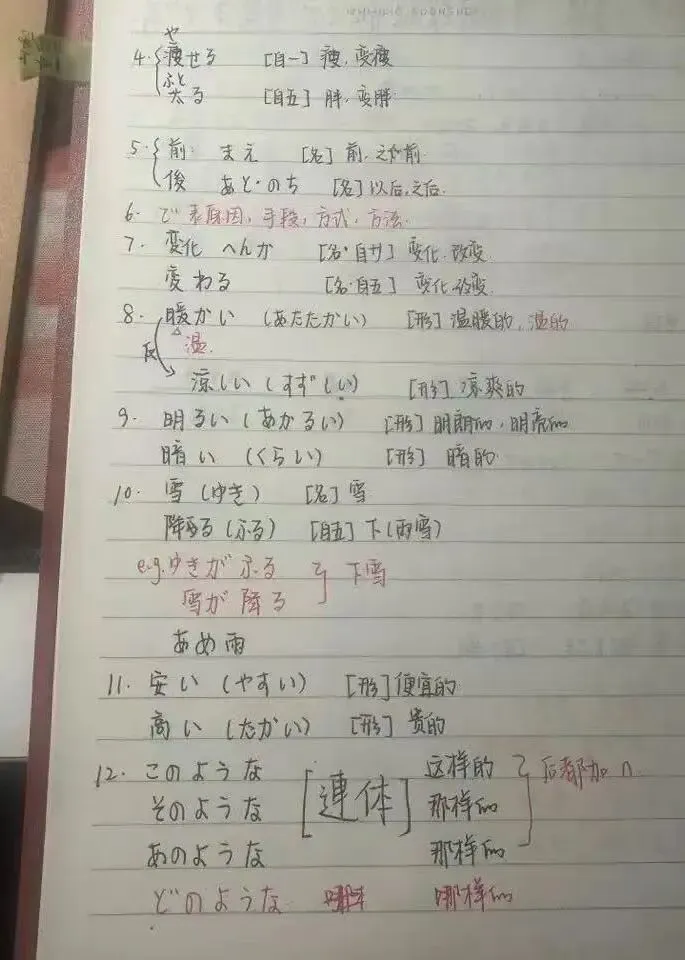 や
4. 痩せる [自一] 瘦，变瘦
ふと
太る [自五] 胖，变胖
5. 前 まえ [名] 前，之前
後 あと・のち [名] 以后，之后.
6. で 表原因，手段，方式，方法.
7. 変化 へんか [名·自サ] 变化，改变
変わる [名·自五] 变化，改变.
8. 暖かい (あたたかい) [形] 温暖的，温的
反 温.
涼しい (すずしい) [形] 凉爽的
9. 明るい (あかるい) [形] 明朗的，明亮的
暗い (くらい) [形] 暗的
10. 雪 (ゆき) [名] 雪
降る (ふる) [自五] 下(雨雪)
e.g. ゆきがふる
雪が降る 下雪
あめ雨
11. 安い (やすい) [形] 便宜的
高い (たかい) [形] 贵的
12. このような [連体] 这样的 后都加 n
そのような 那样的
あのような 那样的
どのような 哪样的